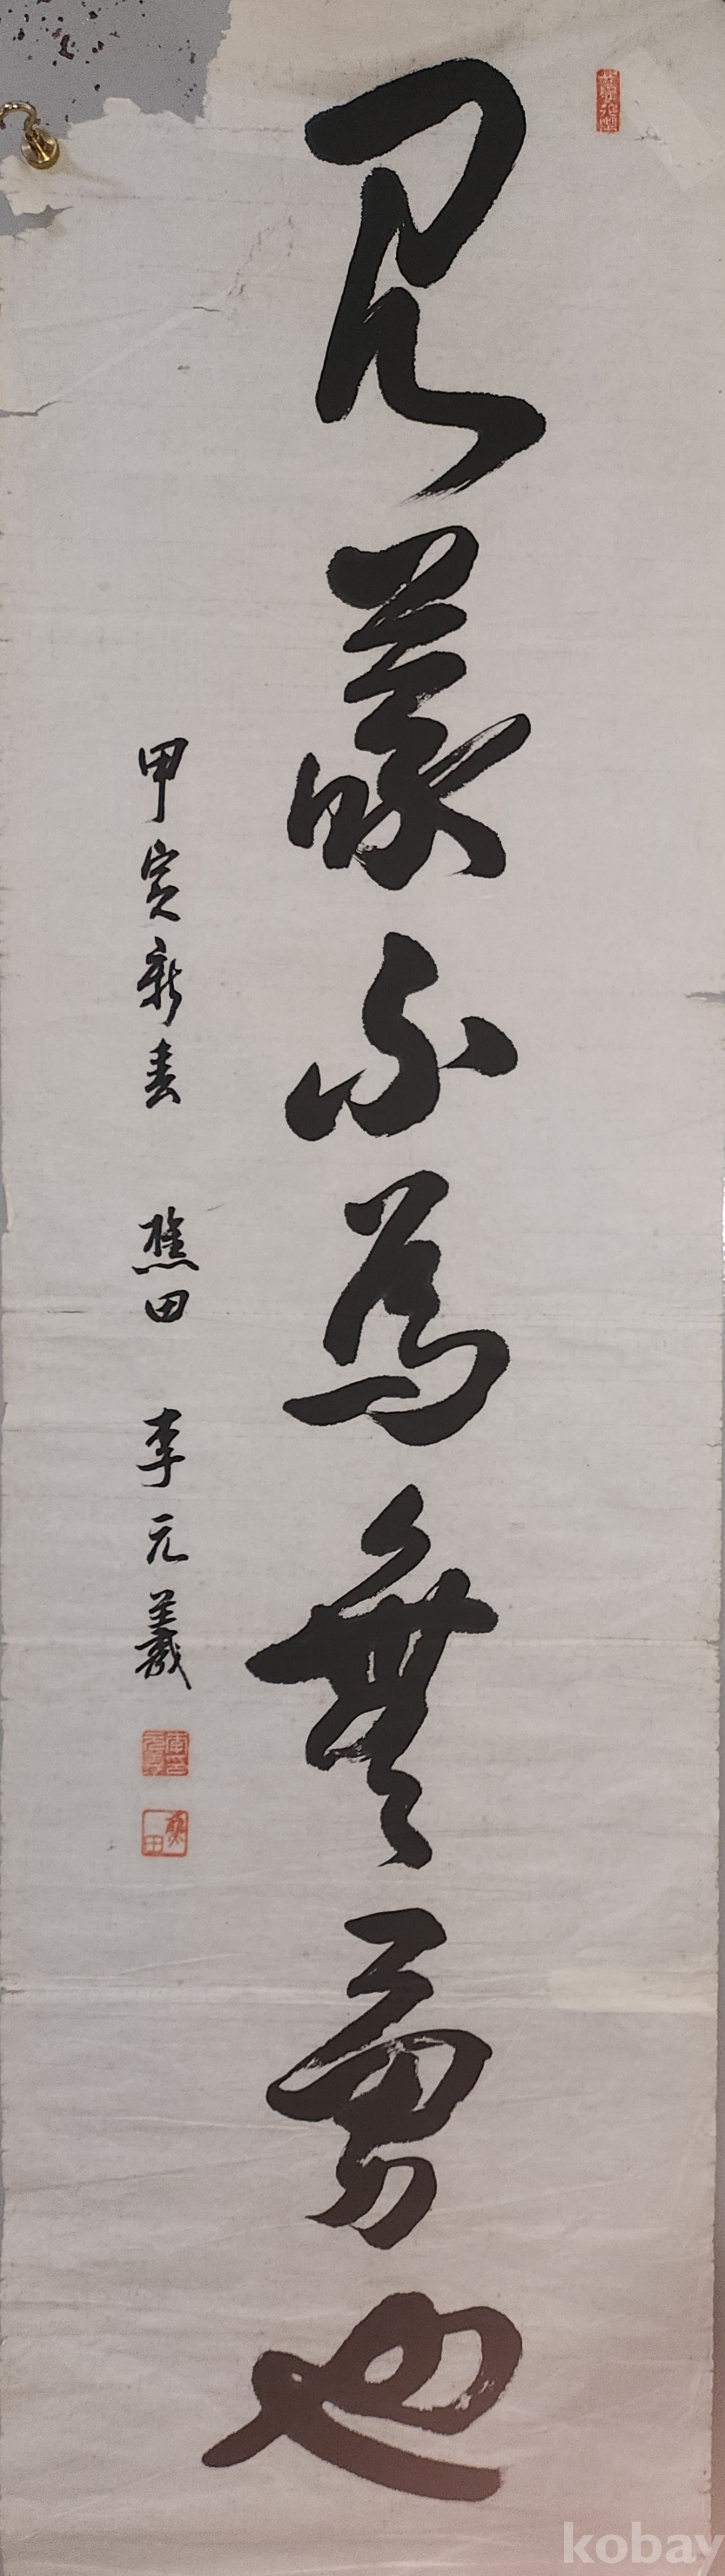 見義不為無勇也
甲寅新春 樵田 李元羲
kobay